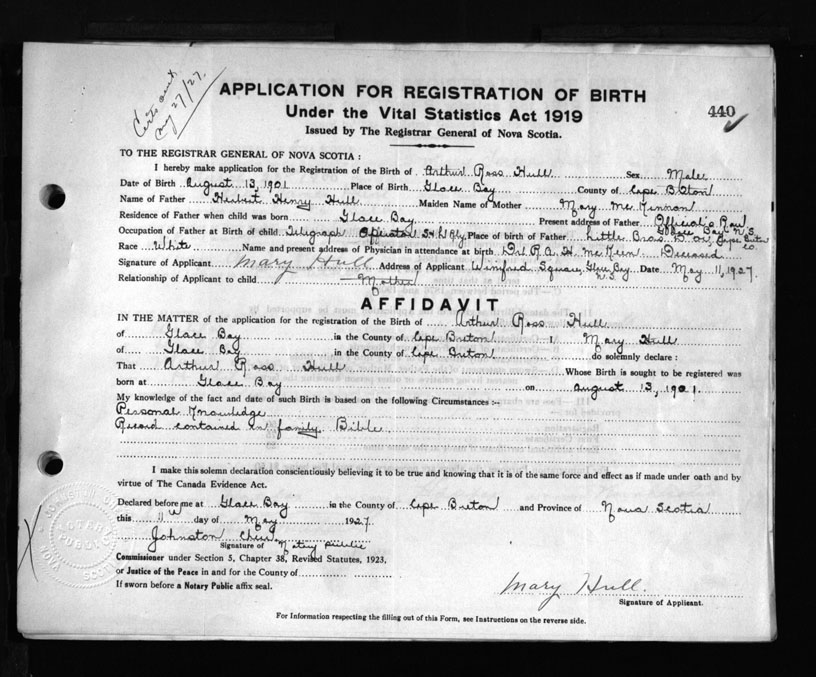 Certs sent
Aug 27/27.
APPLICATION FOR REGISTRATION OF BIRTH
Under the Vital Statistics Act 1919
440
Issued by The Registrar General of Nova Scotia.
TO THE REGISTRAR GENERAL OF NOVA SCOTIA :
I hereby make application for the Registration of the Birth of Arthur Ross Hull Sex Male
Date of Birth August 13, 1901 Place of Birth Glace Bay County of Cape Breton
Name of Father Herbert Henry Hull Maiden Name of Mother Mary McKinnon
Residence of Father when child was born Glace Bay Present address of Father Official's Row Glace Bay N.S.
Occupation of Father at Birth of child Telegraph Operator S & L Rly Place of birth of Father Little Bras D'or, Cape Breton Co.
Race White Name and present address of Physician in attendance at birth R. A. H. McKeen Deceased
Signature of Applicant Mary Hull Address of Applicant Winifred Square, Glace Bay N.S. Date May 11, 1927.
Relationship of Applicant to child Mother
AFFIDAVIT
IN THE MATTER of the application for the registration of the Birth of Arthur Ross Hull
of Glace Bay in the County of Cape Breton I, Mary Hull
of Glace Bay in the County of Cape Breton do solemnly declare :
That Arthur Ross Hull Whose Birth is sought to be registered was
born at Glace Bay on August 13, 1901.
My knowledge of the fact and date of such Birth is based on the following Circumstances :-
Personal Knowledge
Record contained in family Bible
I make this solemn declaration conscientiously believing it to be true and knowing that it is of the same force and effect as if made under oath and by
virtue of The Canada Evidence Act.
Declared before me at Glace Bay in the County of Cape Breton and Province of Nova Scotia
this 11 day of May 1927.
Johnston
Signature of Notary Public
Commissioner under Section 5, Chapter 38, Revised Statutes, 1923,
or Justice of the Peace in and for the County of
If sworn before a Notary Public affix seal.
Mary Hull.
Signature of Applicant.
For Information respecting the filling out of this Form, see Instructions on the reverse side.